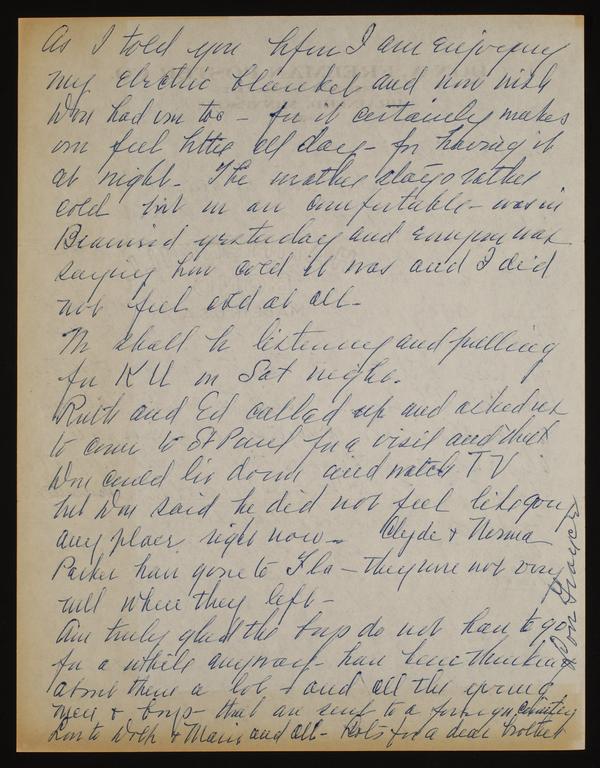 As I told you before I am enjoying
my electric blanket and now wish
Don had one too - for it certainly makes
me feel better all day - for having it
at night. The weather stays rather
cold but we are comfortable - was in
yesterday and everyone was
saying how cold it was and I did
not feel cold at all -
We shall be listening and pulling
for KU on Sat night.
Ruth and Ed called up and asked us
to come to St Paul for a visit and that
Don could lie down and watch TV
but Don said he did not feel like going
any place right now - Clyde & Norma
Parker have gone to Fla - they were not very
well when they left -
Am truly glad the boys do not have to go
for a while anyway - have been thinking
about them a lot & and all the young
men & boys - that are sent to a foreign country
Love to & Marie and all - lots for a dear brother
Don Grayce